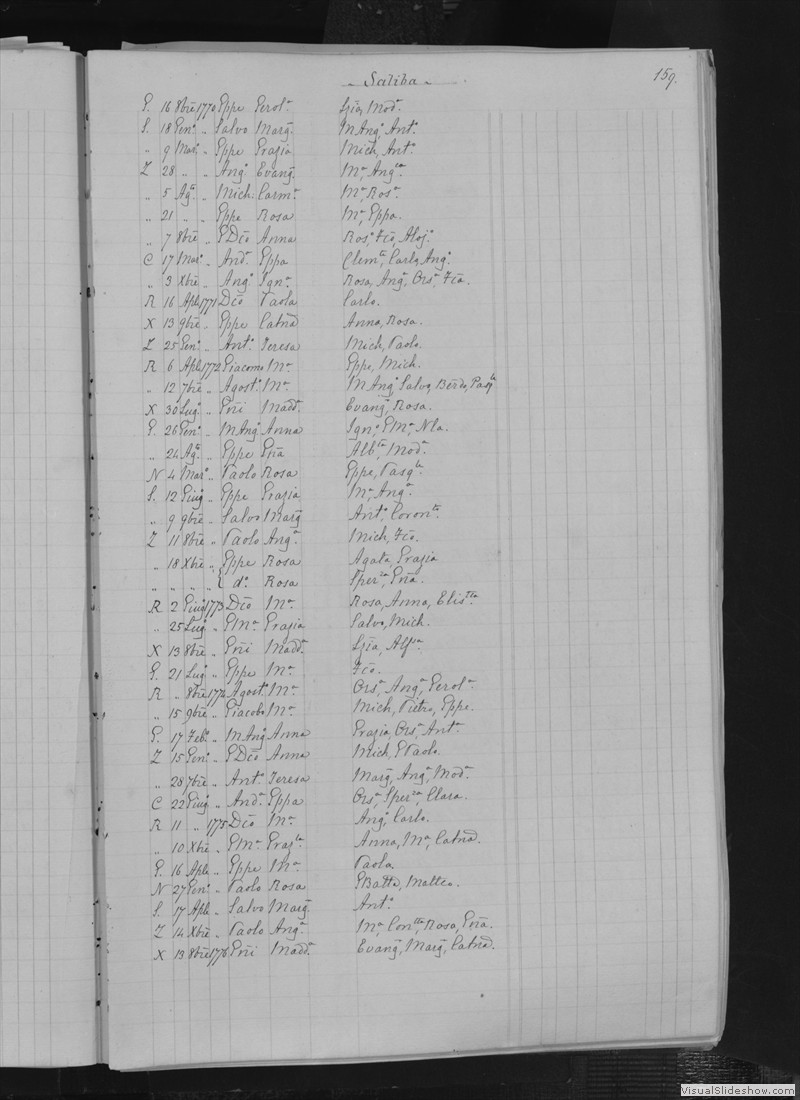 Saliba
159.
G. 16 8bre 1770 Gppe Gerolª Gia, Modª
S. 18 Genº „ Salvo Marg. MAngª, Antª
„ 9 Marº „ Gppe Grazia Mich, Antº
Z 28 „ „ Angº Evang. Mª, Angca
„ 5 Agto „ Mich: Carmª Mª, Rosª
„ 21 „ „ Gppe Rosa Mª, Gppa.
„ 7 8bre „ GDco Anna Rosª, Fco, Aloj.
C 17 Marº „ Andª Gppa Clemte, Carlo, Angº
„ 3 Xbre „ Angº Ignª Rosa, Angª, Orsª, Fca.
R 16 Aple 1771 Dco Paola Carlo.
X 13 9bre „ Gppe Catnd Anna, Rosa.
Z 25 Genº „ Antº Teresa Mich, Paolo.
R 6 Aple 1772 Giacomo Mª Gppe, Mich.
„ 12 7bre „ Agostº Mª MAngº Salvo, Berdo, Pasqle
X 30 Lugº „ Gni Maddª Evang, Rosa.
G. 26 Genº „ MAngº Anna Ignº, GMª, Nla.
„ 24 Agto „ Gppe Gna Albta, Modª
N 4 Marº „ Paolo Rosa Gppe, Pasqle
S. 12 Giug „ Gppe Grazia Mª, Angª
„ 9 9bre „ Salvo Marg Antº, Coronta
Z 11 8bre „ Paolo Angª Mich, Fco.
„ 18 Xbre „ Gppe Rosa Agata, Grazia
„ „ „ „ { dº Rosa Sperza, Gna.
R 2 Giug 1773 Dco Mª Rosa, Anna, Elistta
„ 25 Lug „ GMª Grazia Salvo, Mich.
X 13 8bre „ Gni Maddª Gia, Alfsa
G. 21 Lug „ Gppe Mª Fco.
R „ 8bre 1774 Agostº Mª Orsª, Angª, Gerolª
„ 15 9bre „ Giacobo Mª Mich, Pietro, Gppe.
G. 17 Febº „ MAngº Anna Grazia, Orsª, Antª
Z 15 Genº „ GDco Anna Mich, GPaolo.
„ 28 7bre „ Antº Teresa Marg, Angª, Modª
C 22 Giug „ Andª Gppa Orsª, Sperza, Clara.
R 11 „ 1775 Dco Mª Angº, Carlo.
„ 10 Xbre „ GMª Grazia Anna, Mª, Catnd.
G. 16 Aple „ Gppe Mª Paola.
N 27 Genº „ Paolo Rosa GBatta, Matteo.
S. 17 Aple „ Salvo Marg. Antº
Z 14 Xbre „ Paolo Angª Mª, Contta, Rosa, Gna.
X 13 8bre 1776 Gni Maddª Evang, Marg, Catnd.
VisualSlideshow.com